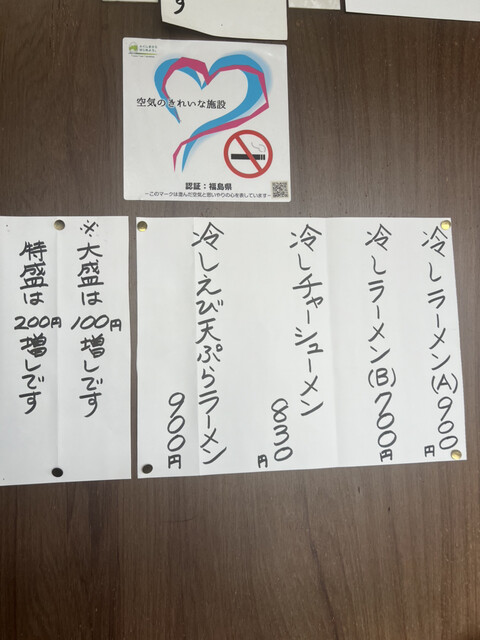 す
空気のきれいな施設
認証：福島県
～このマークは澄んだ空気と思いやりの心を表しています～
冷しラーメン(A)900円
冷しラーメン(B)700円
冷しチャーシューメン
830円
冷しえび天ぷらラーメン
900円
※大盛は100円増しです
特盛は200円増しです